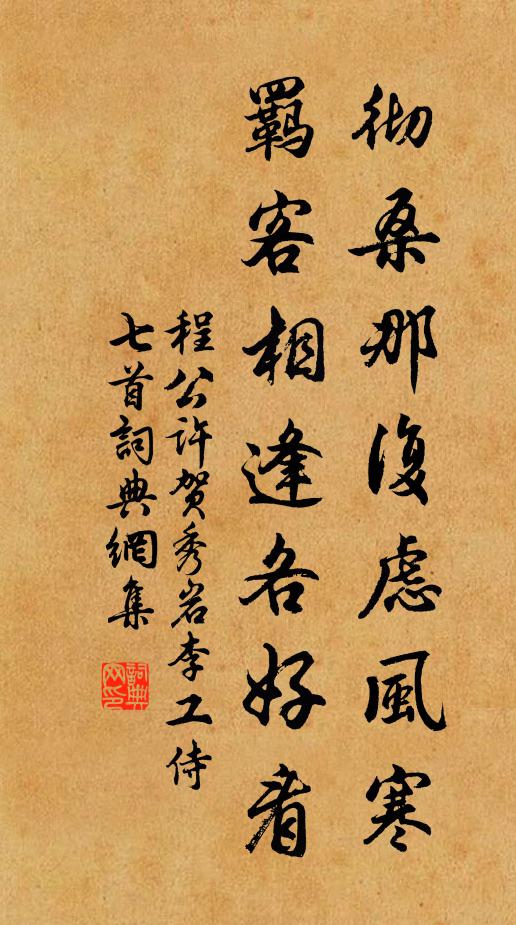 彻桑那復慮風寒
羈客相逢各好看
程公許贺秀岩李工侍
七首詞典網集
詞典
网印